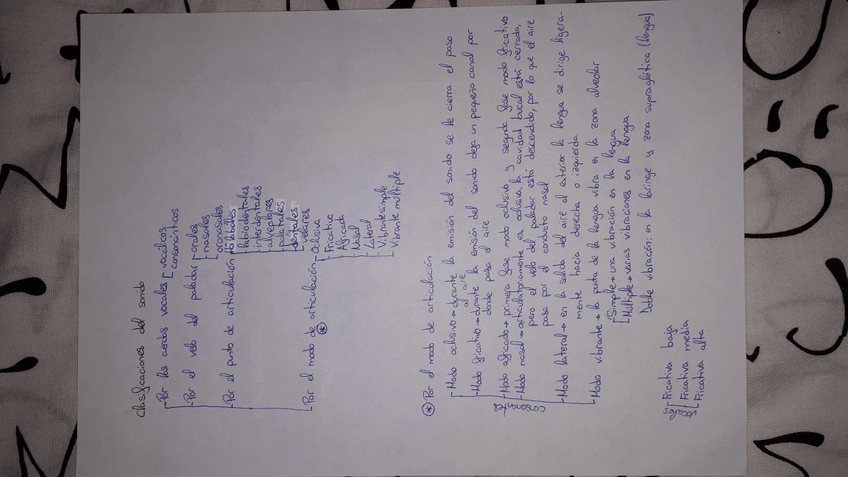 Clasificaciones del sonido
- Por las cuerdas vocales
vocálicos
consonánticos
- Por el velo del paladar
orales
nasales
oronasales
- Por el punto de articulación
bilabiales
labiodentales
interdentales
alveolares
palatales
dentales
velares
- Por el modo de articulación
Oclusiva
Fricativa
Africada
Nasal
Lateral
Vibrante simple
Vibrante múltiple
* Por el modo de articulación
- Modo oclusivo → durante la emisión del sonido se le cierra el paso
al aire
- Modo fricativo → durante la emisión del sonido deja un pequeño canal por
donde pasa el aire
- Modo africado → primera fase modo oclusivo, y segunda fase modo fricativo
- Modo nasal → articulatoriamente es oclusiva, la cavidad bucal está cerrada,
pero el velo del paladar está descendido, por lo que el aire
pasa por el conducto nasal
- Modo lateral → en la salida del aire al exterior la lengua se dirige ligera-
mente hacia derecha o izquierda
- Modo vibrante → la punta de la lengua vibra en la zona alveolar
Simple → una vibración en la lengua
Múltiple → varias vibraciones en la lengua
Doble vibración: en la laringe y zona supraglótica (lengua)
Fricativa baja
Fricativa media
Fricativa alta